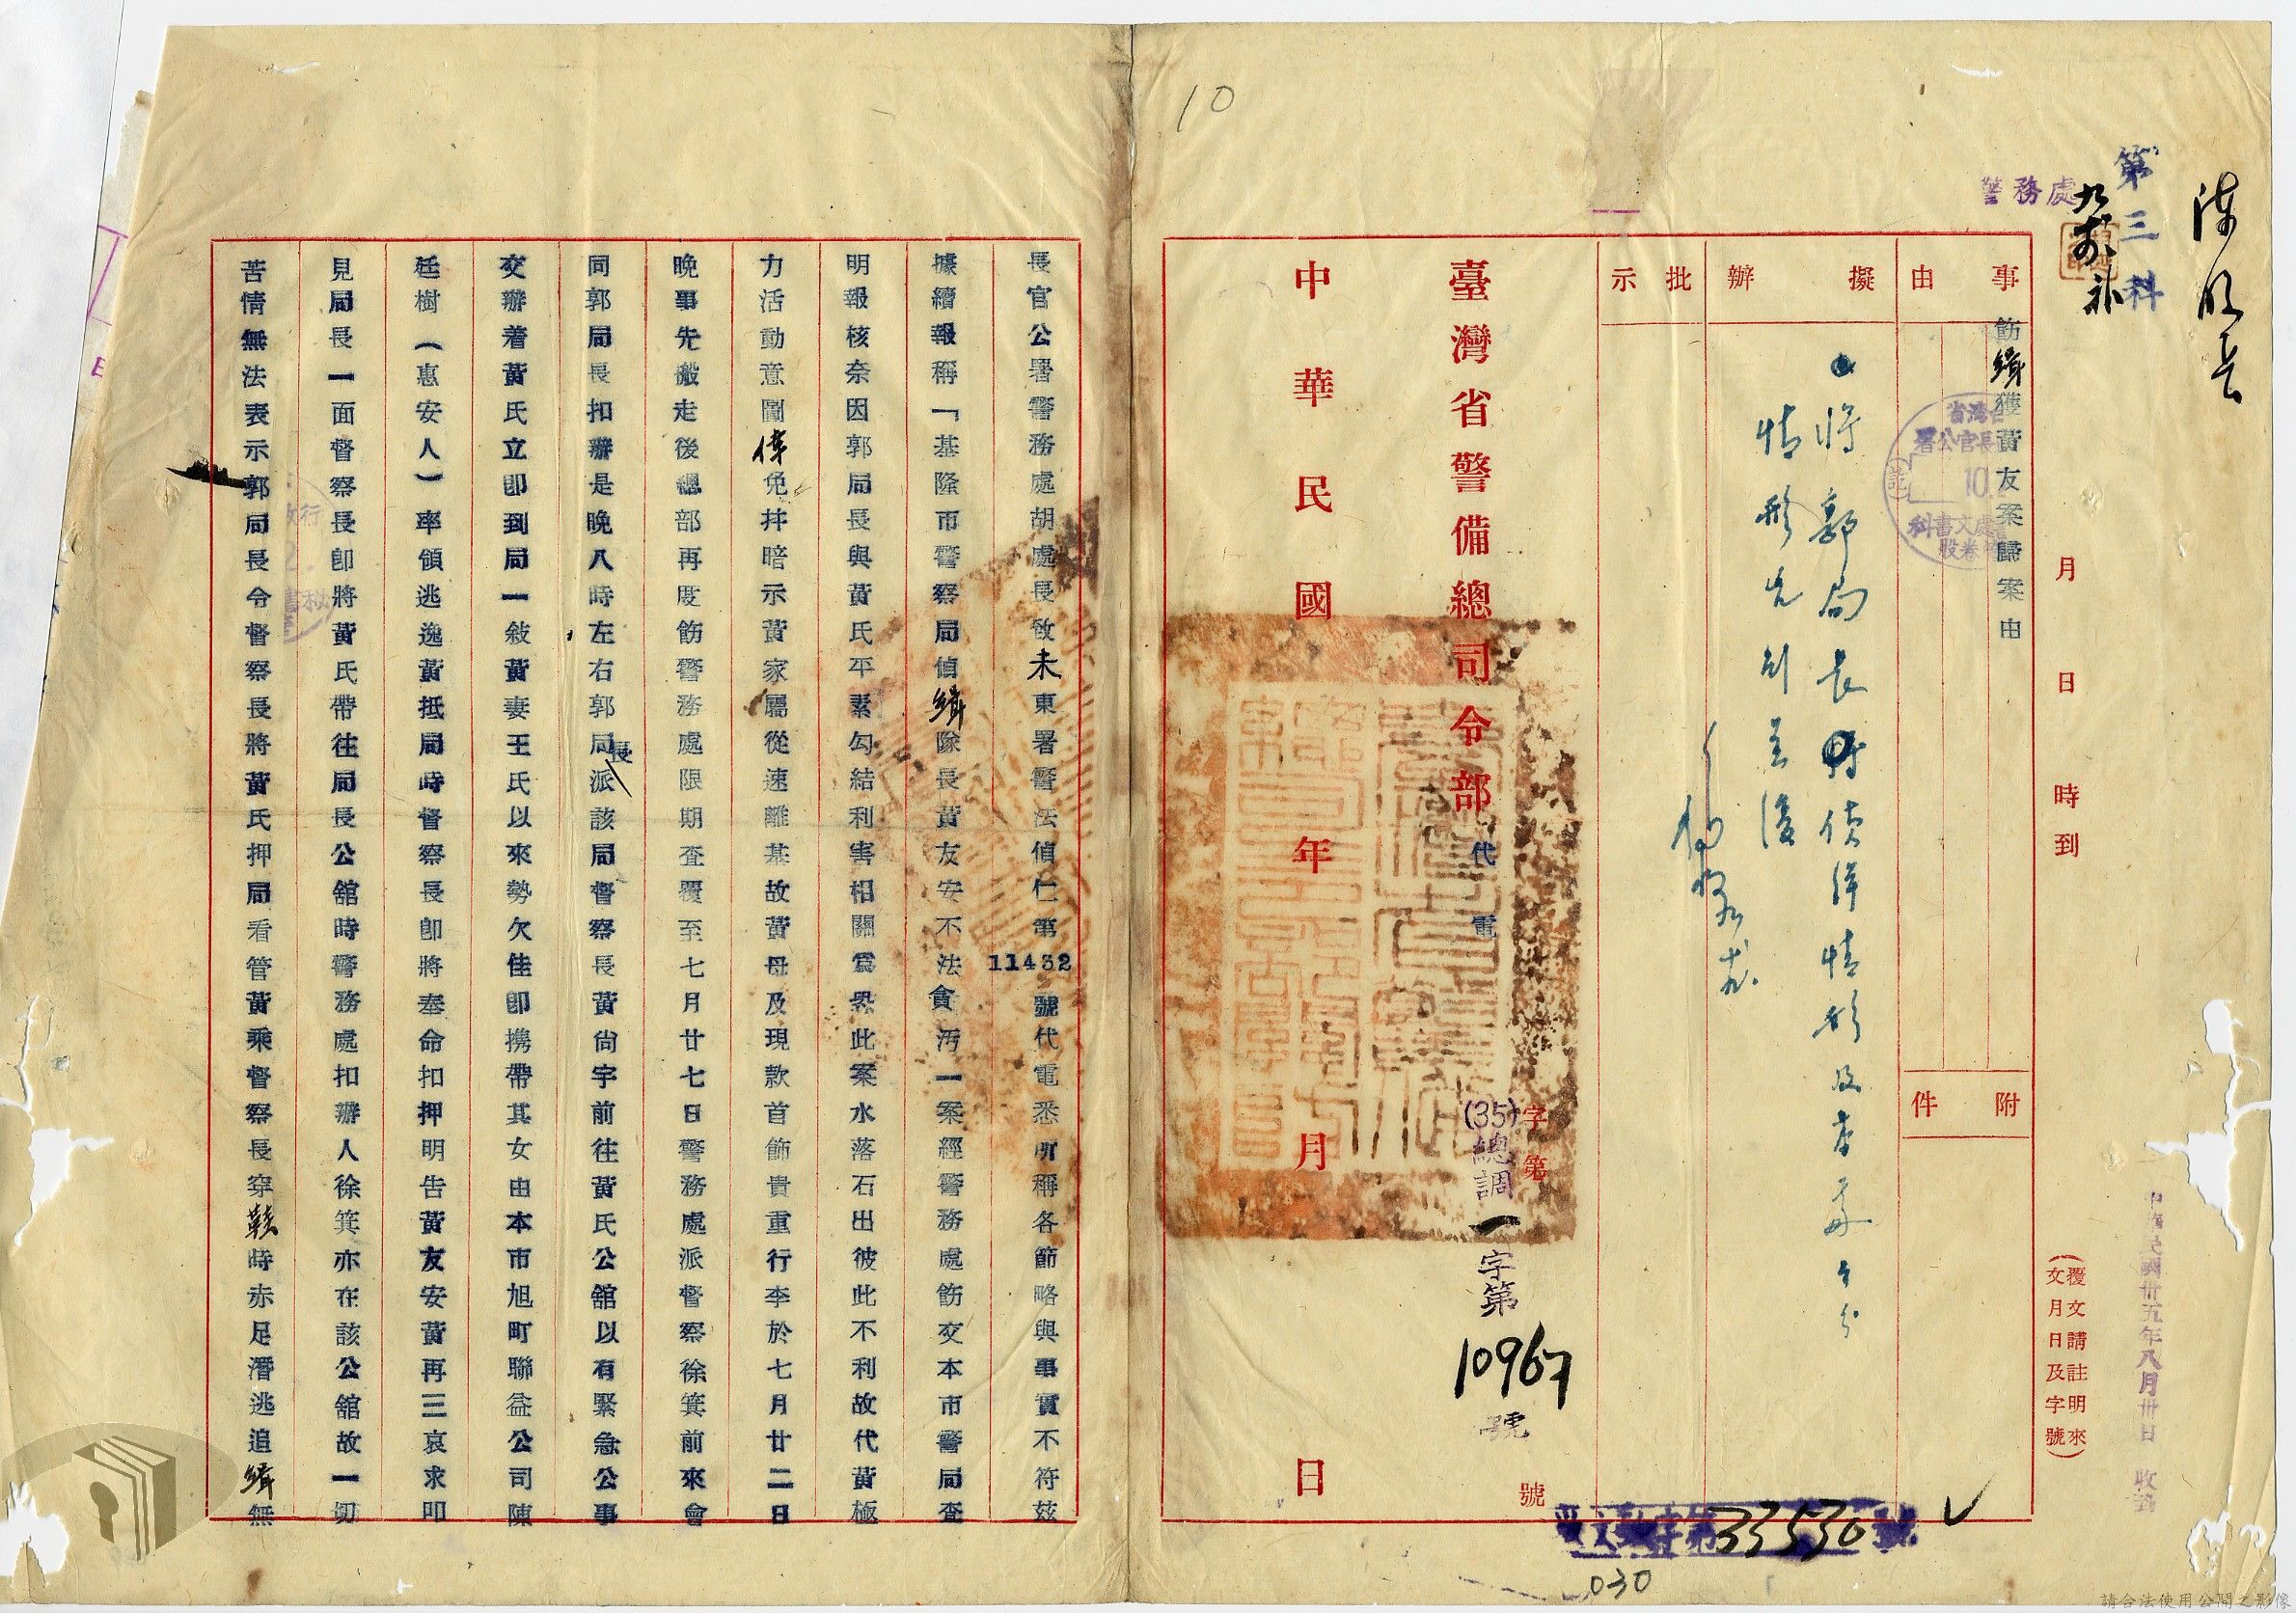 10
第三科
警務處
月 日 時到
(覆文請註明來文月日及字號)
中華民國卅五年八月卅日 收
事由
飭緝獲黃友案歸案由
附件
擬辦
將郭局長
情形先
批示
臺灣省警備總司令部代電
字第 號
(35)總調一字第10967號
中華民國 年 月 日
收文 字第33530號
030
長官公署警務處胡處長致未東署警法偵仁第11432號代電悉所稱各節略與事實不符茲
據續報稱「基隆市警察局偵緝隊長黃友安不法貪污一案經警務處飭交本市警局查
明報核奈因郭局長與黃氏平素勾結利害相關為恐此案水落石出彼此不利故代黃極
力活動意圖倖免并暗示黃家屬從速離基故黃母及現款首飾貴重行李於七月廿二日
晚事先搬走後總部再度飭警務處限期查覆至七月廿七日警務處派督察徐箕前來會
同郭局長扣辦是晚八時左右郭局長派該局督察長黃尙宇前往黃氏公舘以有緊急公事
交辦着黃氏立即到局一敍黃妻王氏以來勢欠佳即携帶其女由本市旭町聯益公司陳
廷樹(惠安人)率領逃逸黃抵局時督察長即將奉命扣押明告黃友安黃再三哀求叩
見局長一面督察長即將黃氏帶往局長公舘時警務處扣辦人徐箕亦在該公舘故一切
苦情無法表示郭局長令督察長將黃氏押局看管黃乘督察長穿鞋時赤足潛逃追緝無
請合法使用公開之影像